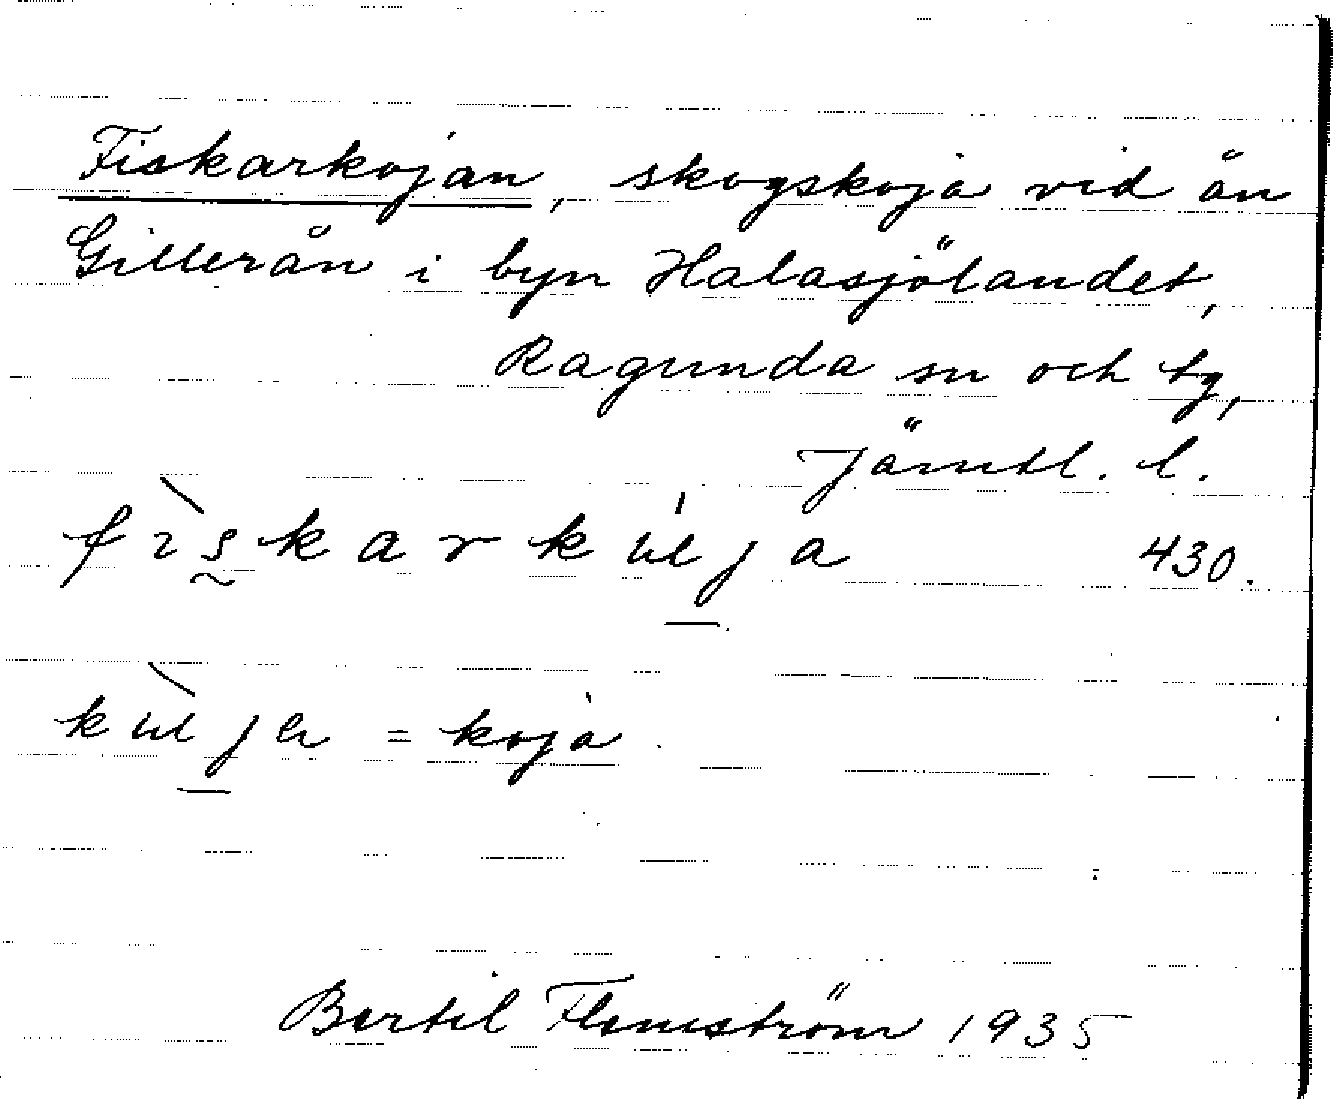 Fiskarkojan, skogskoja vid ån
Gillerån i byn Halasjölandet,
Ragunda sn och tg,
Jämtl. l.
fiskarkuja 430.
= koja
Bertil Flemström 1935